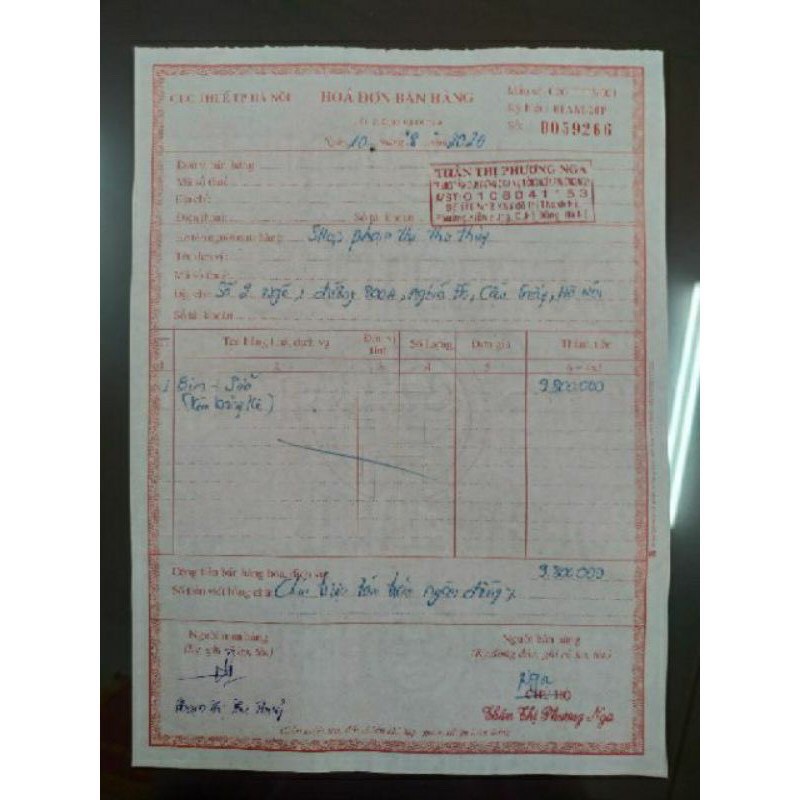 CỤC THUẾ TP HÀ NỘI
HOÁ ĐƠN BÁN HÀNG
Mẫu số:
Ký hiệu: 01AM/20P
Số: 0059266
Ngày 10 tháng 8 năm 2020
Đơn vị bán hàng:
Mã số thuế:
Địa chỉ:
Điện thoại: Số tài khoản
THÂN THỊ PHƯƠNG NGA
Họ tên người mua hàng: Shop phạm thị thu thủy
Tên đơn vị:
Mã số thuế:
Địa chỉ: Số 2 ngõ, đường 800A, nghĩa đô, Cầu Giấy, Hà Nội
Số tài khoản
Tên hàng hoá, dịch vụ Đơn vị tính Số lượng Đơn giá Thành tiền
1 Bỉm - Sữa 9.800.000
(Kèm bảng kê)
Cộng tiền bán hàng hóa, dịch vụ: 9.800.000
Số tiền viết bằng chữ: Chín triệu tám trăm ngàn đồng
Người mua hàng
(Ký, ghi rõ họ, tên)
Người bán hàng
Nga
CHỦ HỘ
Phạm Thị Thu Thuỷ
Thân Thị Phương Nga